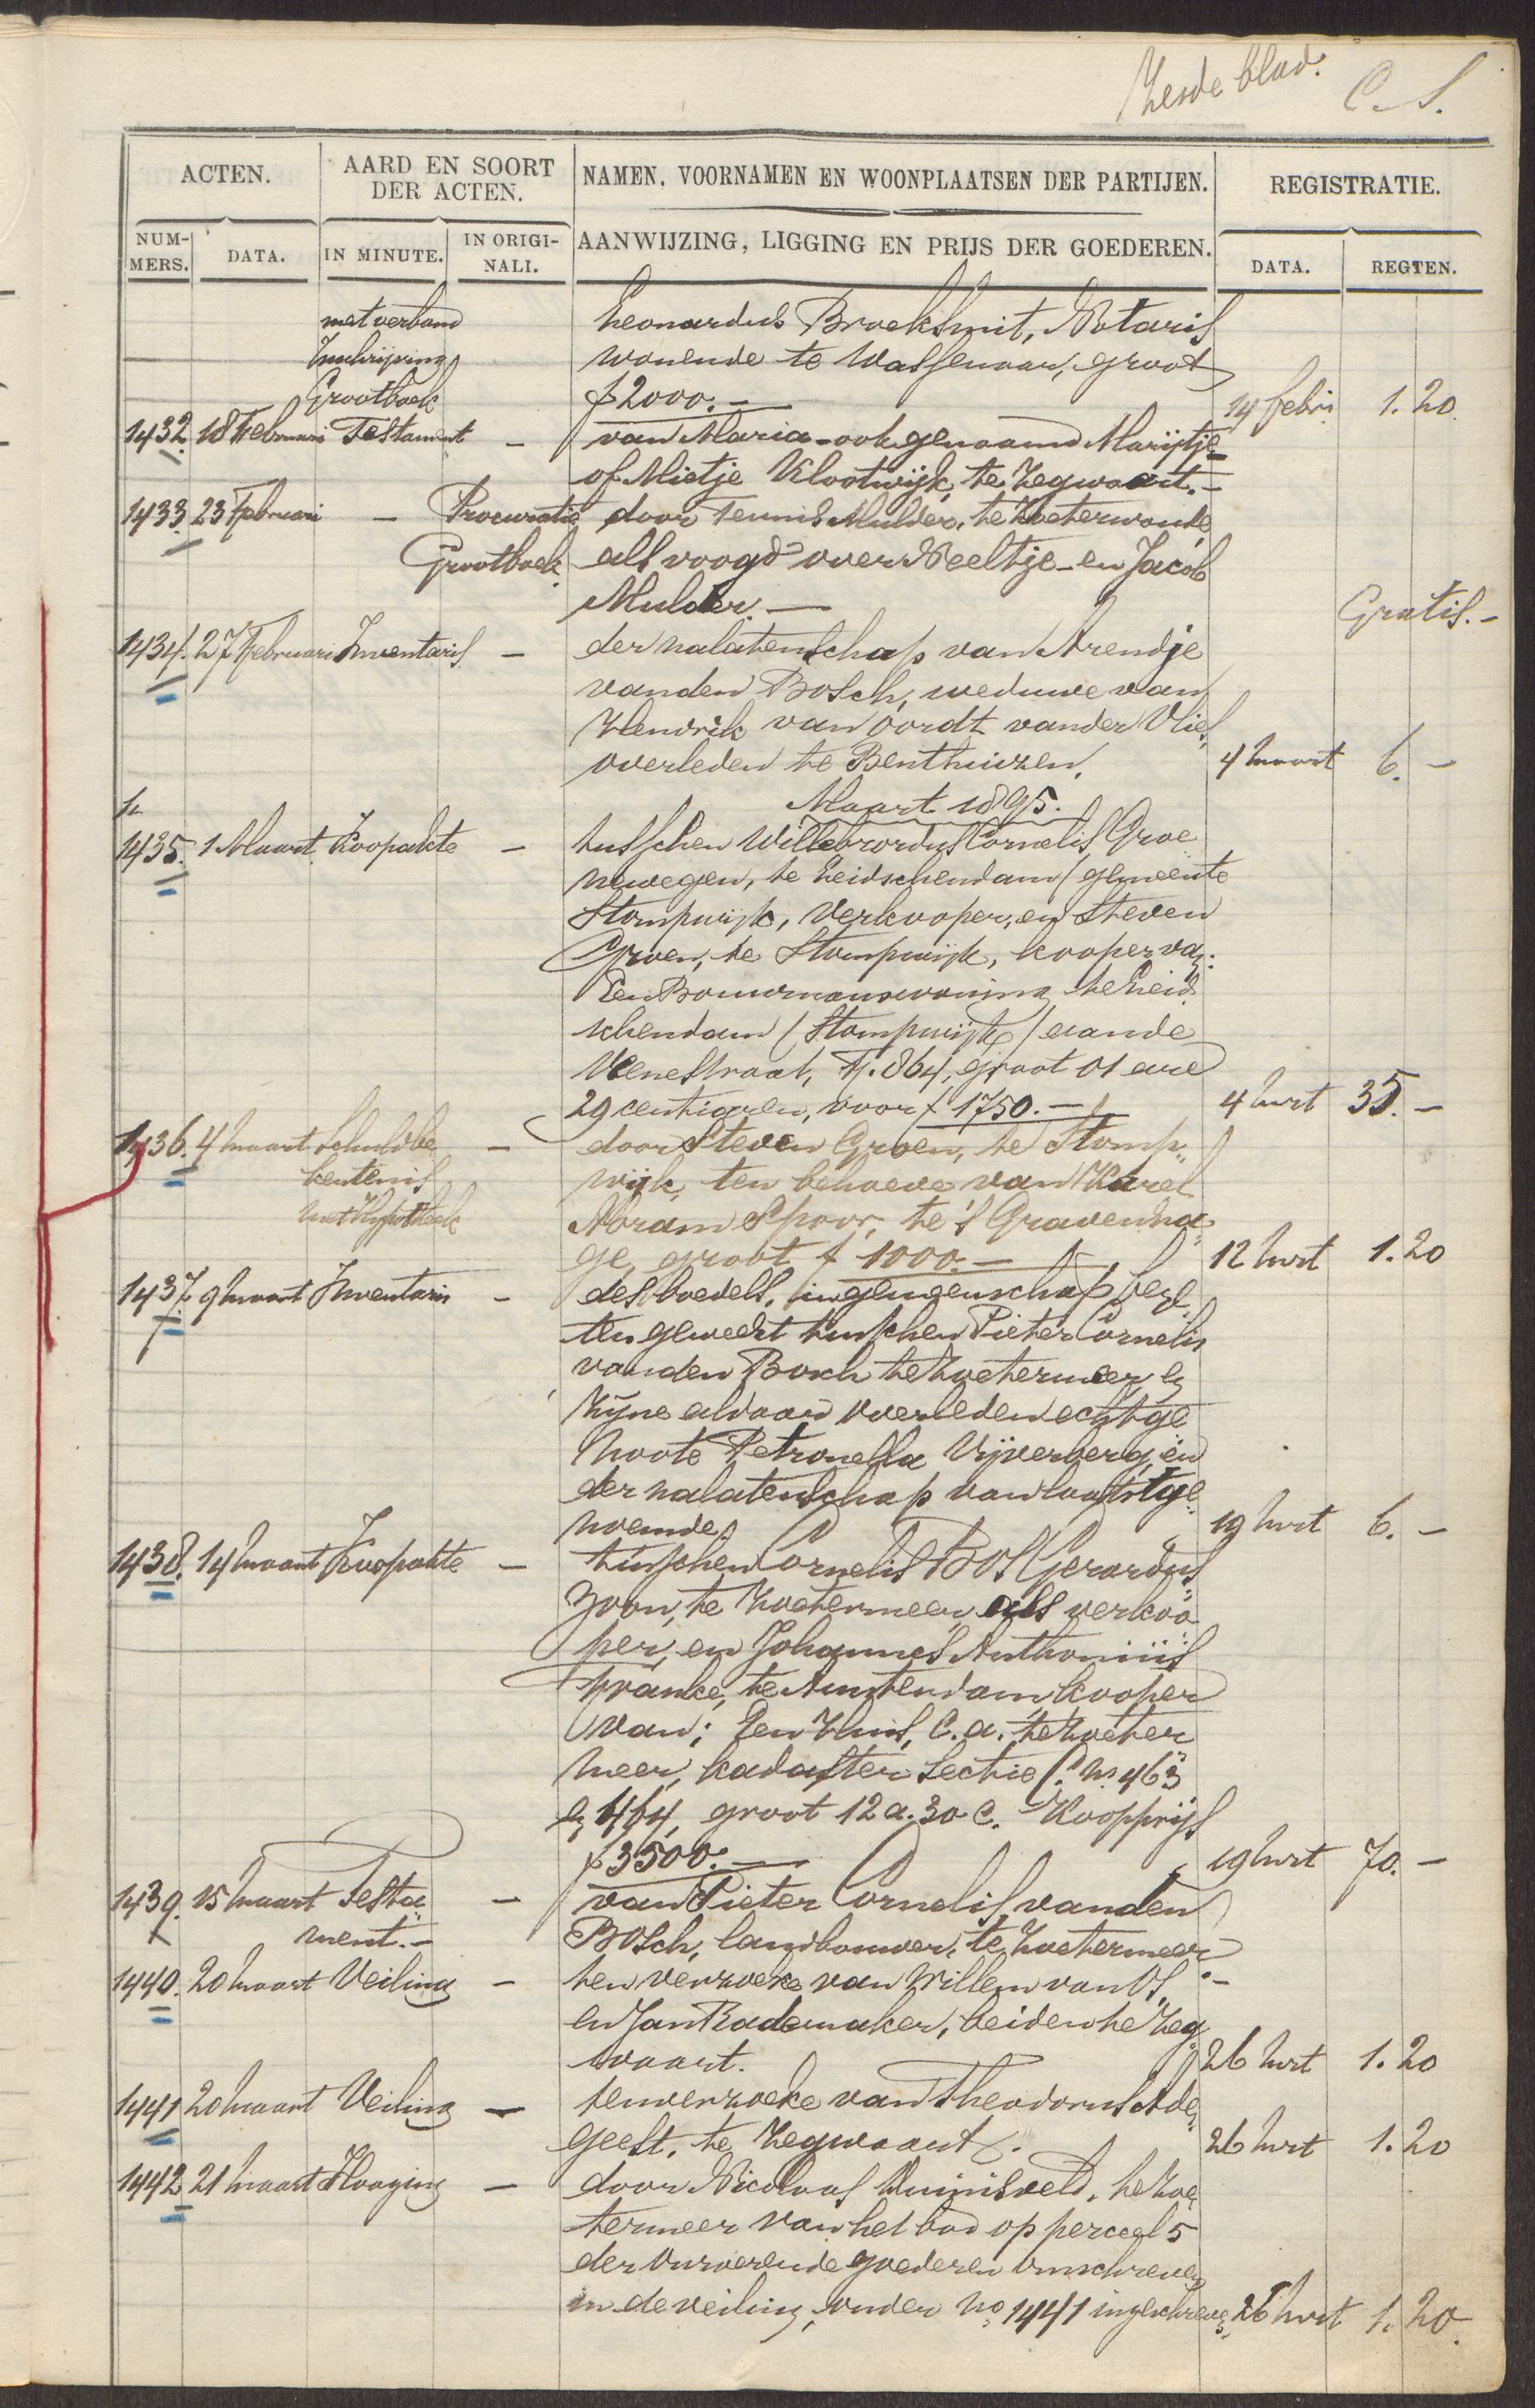 Zesde blad. C. S.
ACTEN. AARD EN SOORT DER ACTEN. NAMEN, VOORNAMEN EN WOONPLAATSEN DER PARTIJEN. REGISTRATIE.
NUM-MERS. DATA. IN MINUTE. IN ORIGI-NALI. AANWIJZING, LIGGING EN PRIJS DER GOEDEREN. DATA. REGTEN.
met verband Leonardus Broeksmit, Notaris
Inschrijving wonende te Wassenaar, groot
Grootboek f 2000.- 14 febr. 1.20
1432. 18 Februari Testament - van Maria-ook genaamd Marijtje-
of Mietje Klootwijk, te Zegwaart.-
1433. 23 Februari - Procuratie door Teunis Mulder, te Zoeterwoude,
Grootboek. als voogd over Neeltje-en Jacob
Mulder.- Gratis.-
1434. 27 Februari Inventaris - der nalatenschap van Arendje
van den Bosch, weduwe van
Hendrik van Oordt van der Vlies,
overleden te Benthuizen. 4 Maart 6.-
Maart 1895.
1435. 1 Maart Koopakte - tusschen Willebrordus Cornelis Groe
newegen, te Leidschendam (gemeente
Stompwijk, Verkooper, en Steven
Groen, te Stompwijk, kooper van:
Een Bouwmanswoning te Leid
schendam (Stompwijk) aan de
Venestraat, A. 864, groot 01 are
29 centiaren, voor f 1750.- 4 Mrt 35.-
1436. 4 Maart Schuldbe - door Steven Groen, te Stomp-
kentenis wijk, ten behoeve van Karel
met Hypotheek Abram Spoor, te 's Gravenha-
ge, groot f 1000.- 12 Mrt 1.20
1437. 9 Maart Inventaris - des boedels, in gemeenschap beze-
ten geweest tusschen Pieter Cornelis
van den Bosch te Zoetermeer en
zijne aldaar overleden echtge
noote Petronella Vijverberg, en
der nalatenschap van laatstge-
noemde. 19 Mrt 6.-
1438. 14 Maart Koopakte - tusschen Cornelis Bos Gerardus
zoon, te Zoetermeer, als verkoo
per, en Johannes Anthonius
Franke, te Amsterdam, kooper
van: Een Huis, c.a. te Zoeter
meer, kadaster Sectie C. No 463
en 464, groot 12 a. 30 c. Koopprijs
f 3500.- 19 Mrt 70.-
1439. 15 Maart Testa- - van Pieter Cornelis van den
ment.- Bosch, landbouwer, te Zoetermeer
1440. 20 Maart Veiling - ten verzoeke van Willem van Os.-
en Jan Rademaker, beiden te Zeg
waart. 26 Mrt 1.20
1441 20 Maart Veiling - ten verzoeke van Theodorus Ade-
geest, te Zegwaart. 26 Mrt 1.20
1442 21 Maart Hooging - door Nicolaas Duinisveld, te Zoe
termeer van het bod op perceel 5
der onroerende goederen omschreven
in de veiling, onder No 1441 ingeschreven. 26 Mrt 1.20.